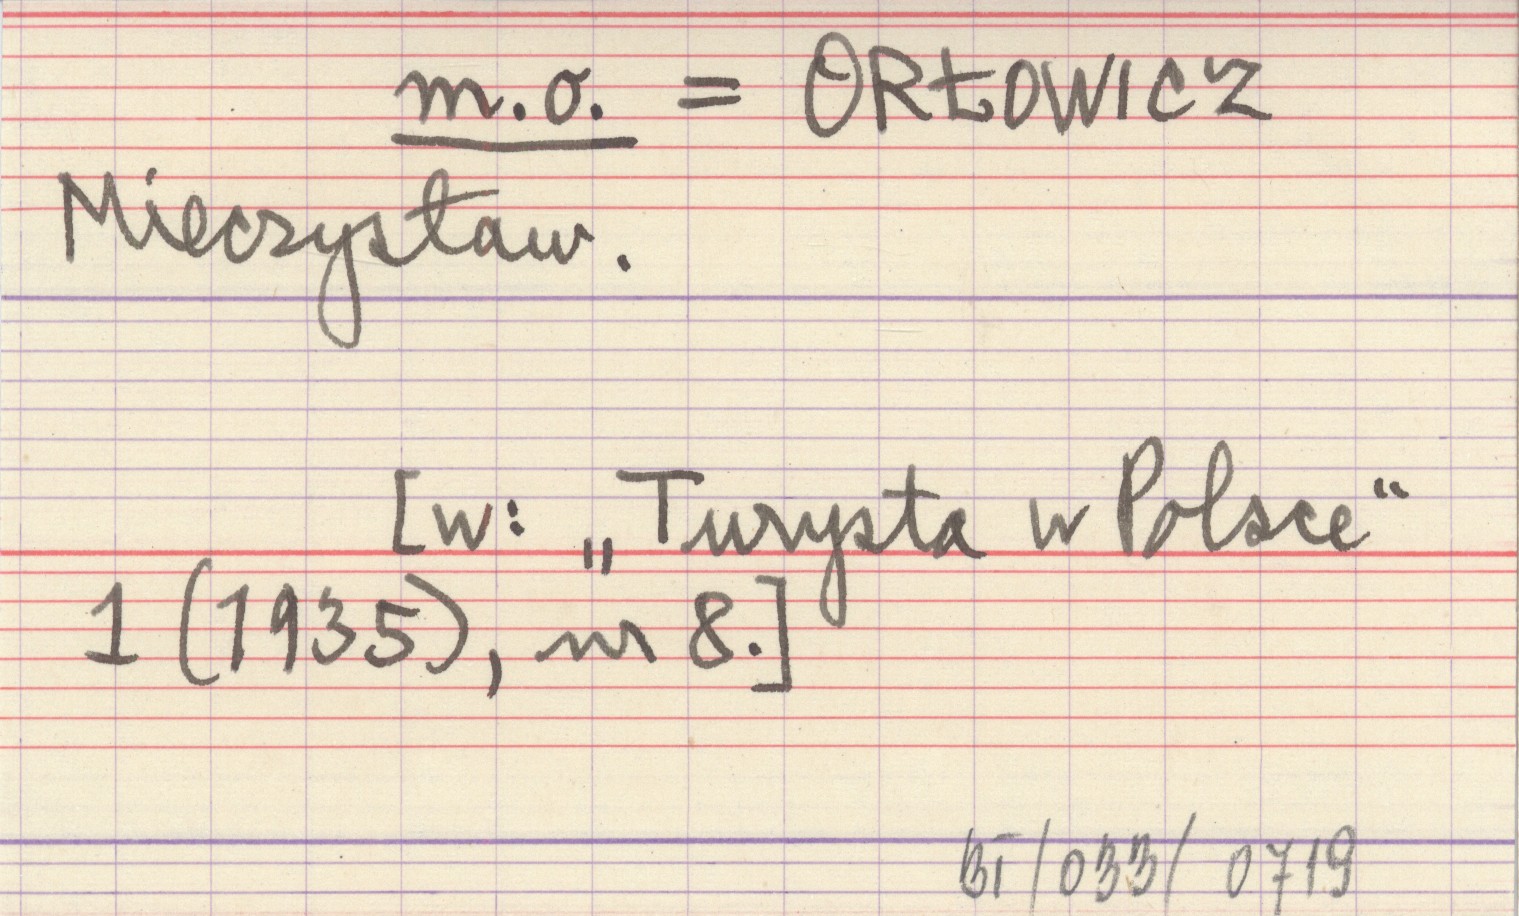 m.o. = ORŁOWICZ
Mieczysław.
[w: „Turysta w Polsce“
1 (1935), nr 8.]
BI/033/ 0719